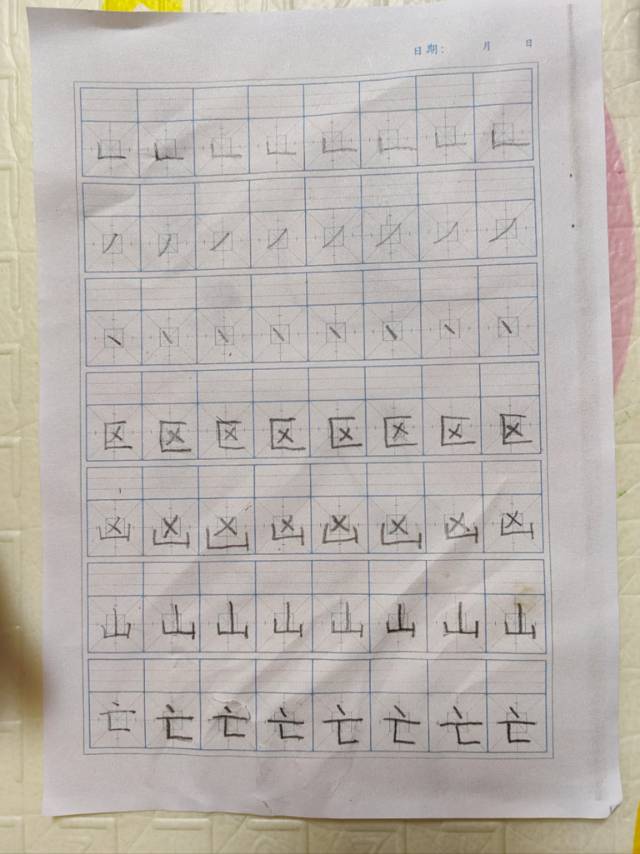 日期： 月 日
𠃊 𠃊 𠃊 𠃊 𠃊 𠃊 𠃊 𠃊
丿 丿 丿 丿 丿 丿 丿 丿
丶 丶 丶 丶 丶 丶 丶 丶
区 区 区 区 区 区 区 区
凶 凶 凶 凶 凶 凶 凶 凶
山 山 山 山 山 山 山 山
亡 亡 亡 亡 亡 亡 亡 亡